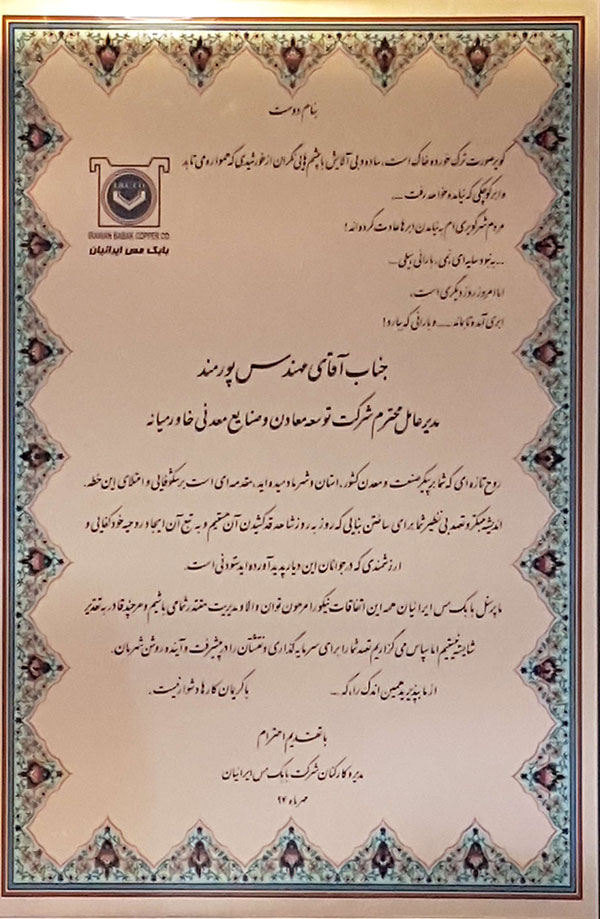 بنام دوست
کویر صورت ترک خورده خاک است، ساده و بی آلایش با چشم هایی نگران از خورشیدی که همواره می تابد
و ابر کوچکی که نیامده خواهد رفت ....
مردم شهر کویری ام به نیامدن ابرها عادت کرده اند!
... به نبود سایه ای، نمی، بارانی، سیلی ...
اما امروز روز دیگری است،
ابری آمده تا بماند ..... و بارانی که ببارد!
IBCCO
IRANIAN BABAK COPPER CO.
بابک مس ایرانیان
جناب آقای مهندس پورمند
مدیر عامل محترم شرکت توسعه معادن و صنایع معدنی خاورمیانه
روح تازه ای که شما بر پیکر صنعت و معدن کشور، استان و شهر ما دمیده اید، مقدمه ای است بر شکوفایی و اعتلای این خطه.
اندیشه مبتکر و تعهد بی نظیر شما برای ساختن بنایی که روز به روز شاهد قد کشیدن آن هستیم و به تبع آن ایجاد روحیه خودکفایی و
ارزشمندی که در جوانان این دیار پدید آورده اید ستودنی است.
ما پرسنل بابک مس ایرانیان همه این اتفاقات نیکو را مرهون توان والا و مدیریت مقتدر شما می باشیم و هر چند قادر به تقدیر
شایسته نیستیم اما سپاس می گزاریم تعهد شما را برای سرمایه گذاری و نقشتان را در پیشرفت و آینده روشن شهرمان.
از ما بپذیرید همین اندک را، که .... با کریمان کارها دشوار نیست.
با تقدیم احترام
مدیر و کارکنان شرکت بابک مس ایرانیان
مهر ماه ۹۴